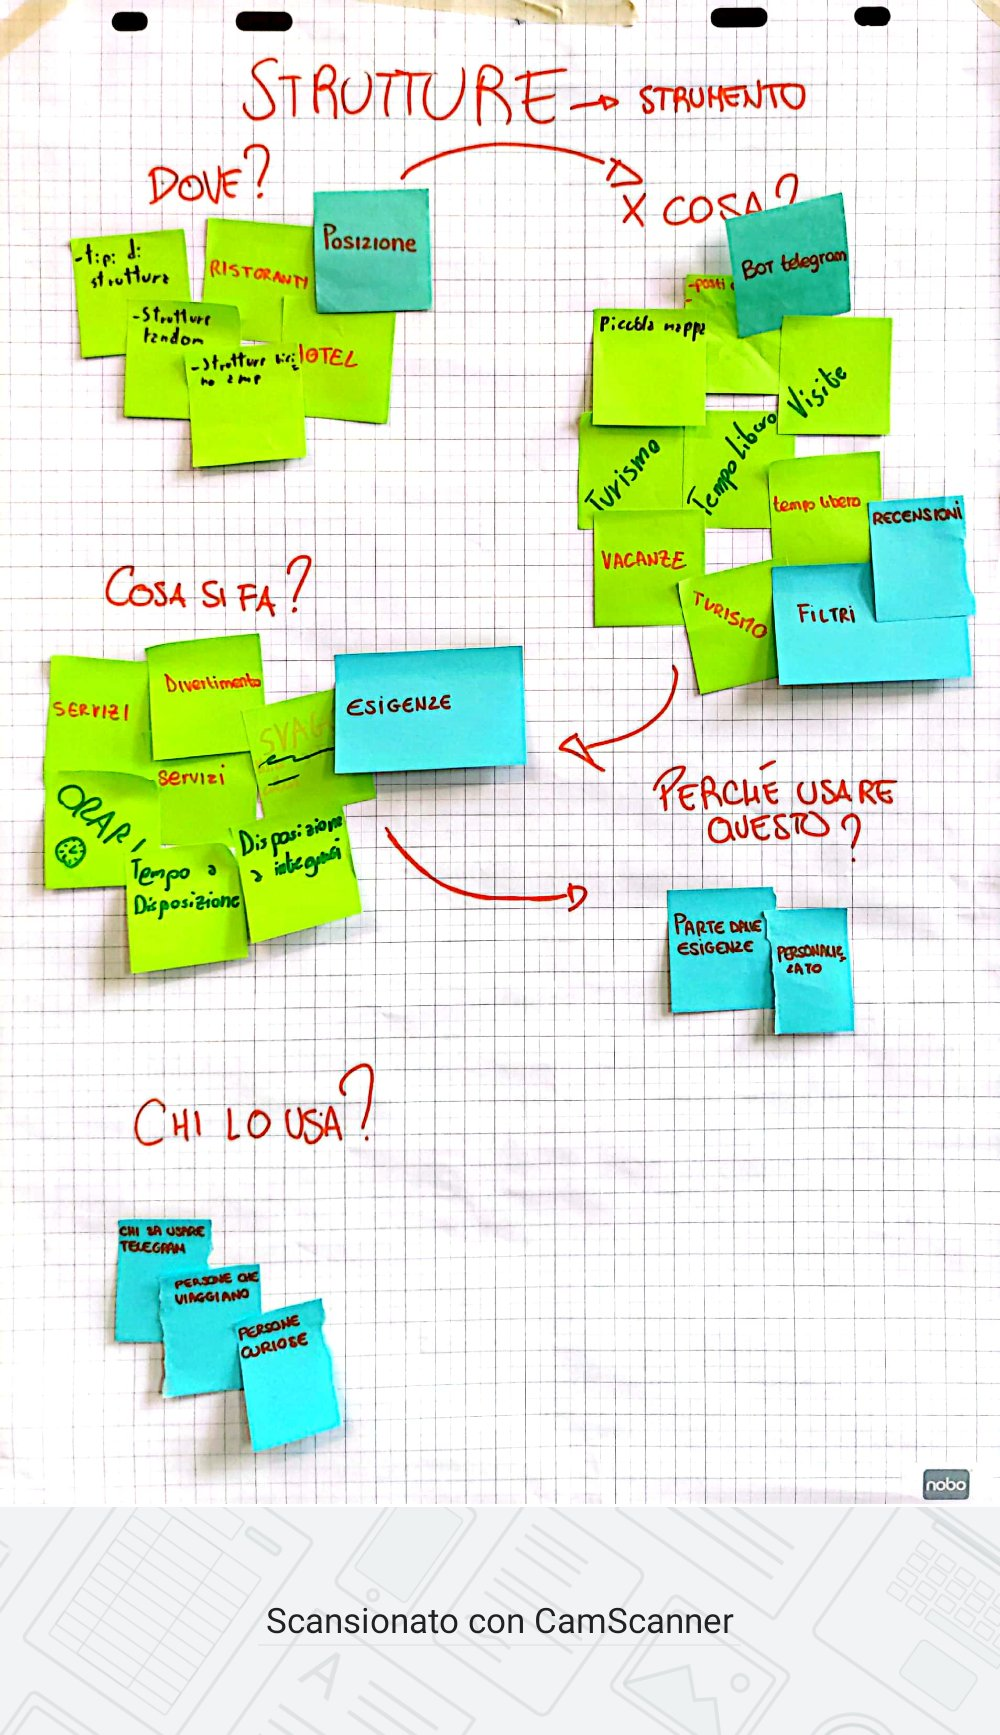 STRUTTURE → STRUMENTO
DOVE?
-tipi di
struttura
RISTORANTI
POSIZIONE
-Strutture
random
-Strutture vici
no a me
HOTEL
X COSA?
BOT telegram
-posti
-
Piccola mappa
Visite
Turismo
Tempo Libero
tempo libero
RECENSIONI
VACANZE
TURISMO
FILTRI
COSA SI FA?
SERVIZI
Divertimento
SVAG
ESIGENZE
servizi
ORARI
Tempo a
Disposizione
Disposizione
a integrarsi
PERCHÉ USARE
QUESTO?
PARTE DALLE
ESIGENZE
PERSONALIZ
ZATO
CHI LO USA?
CHI SA USARE
TELEGRAM
PERSONE CHE
VIAGGIANO
PERSONE
CURIOSE
nobo
Scansionato con CamScanner